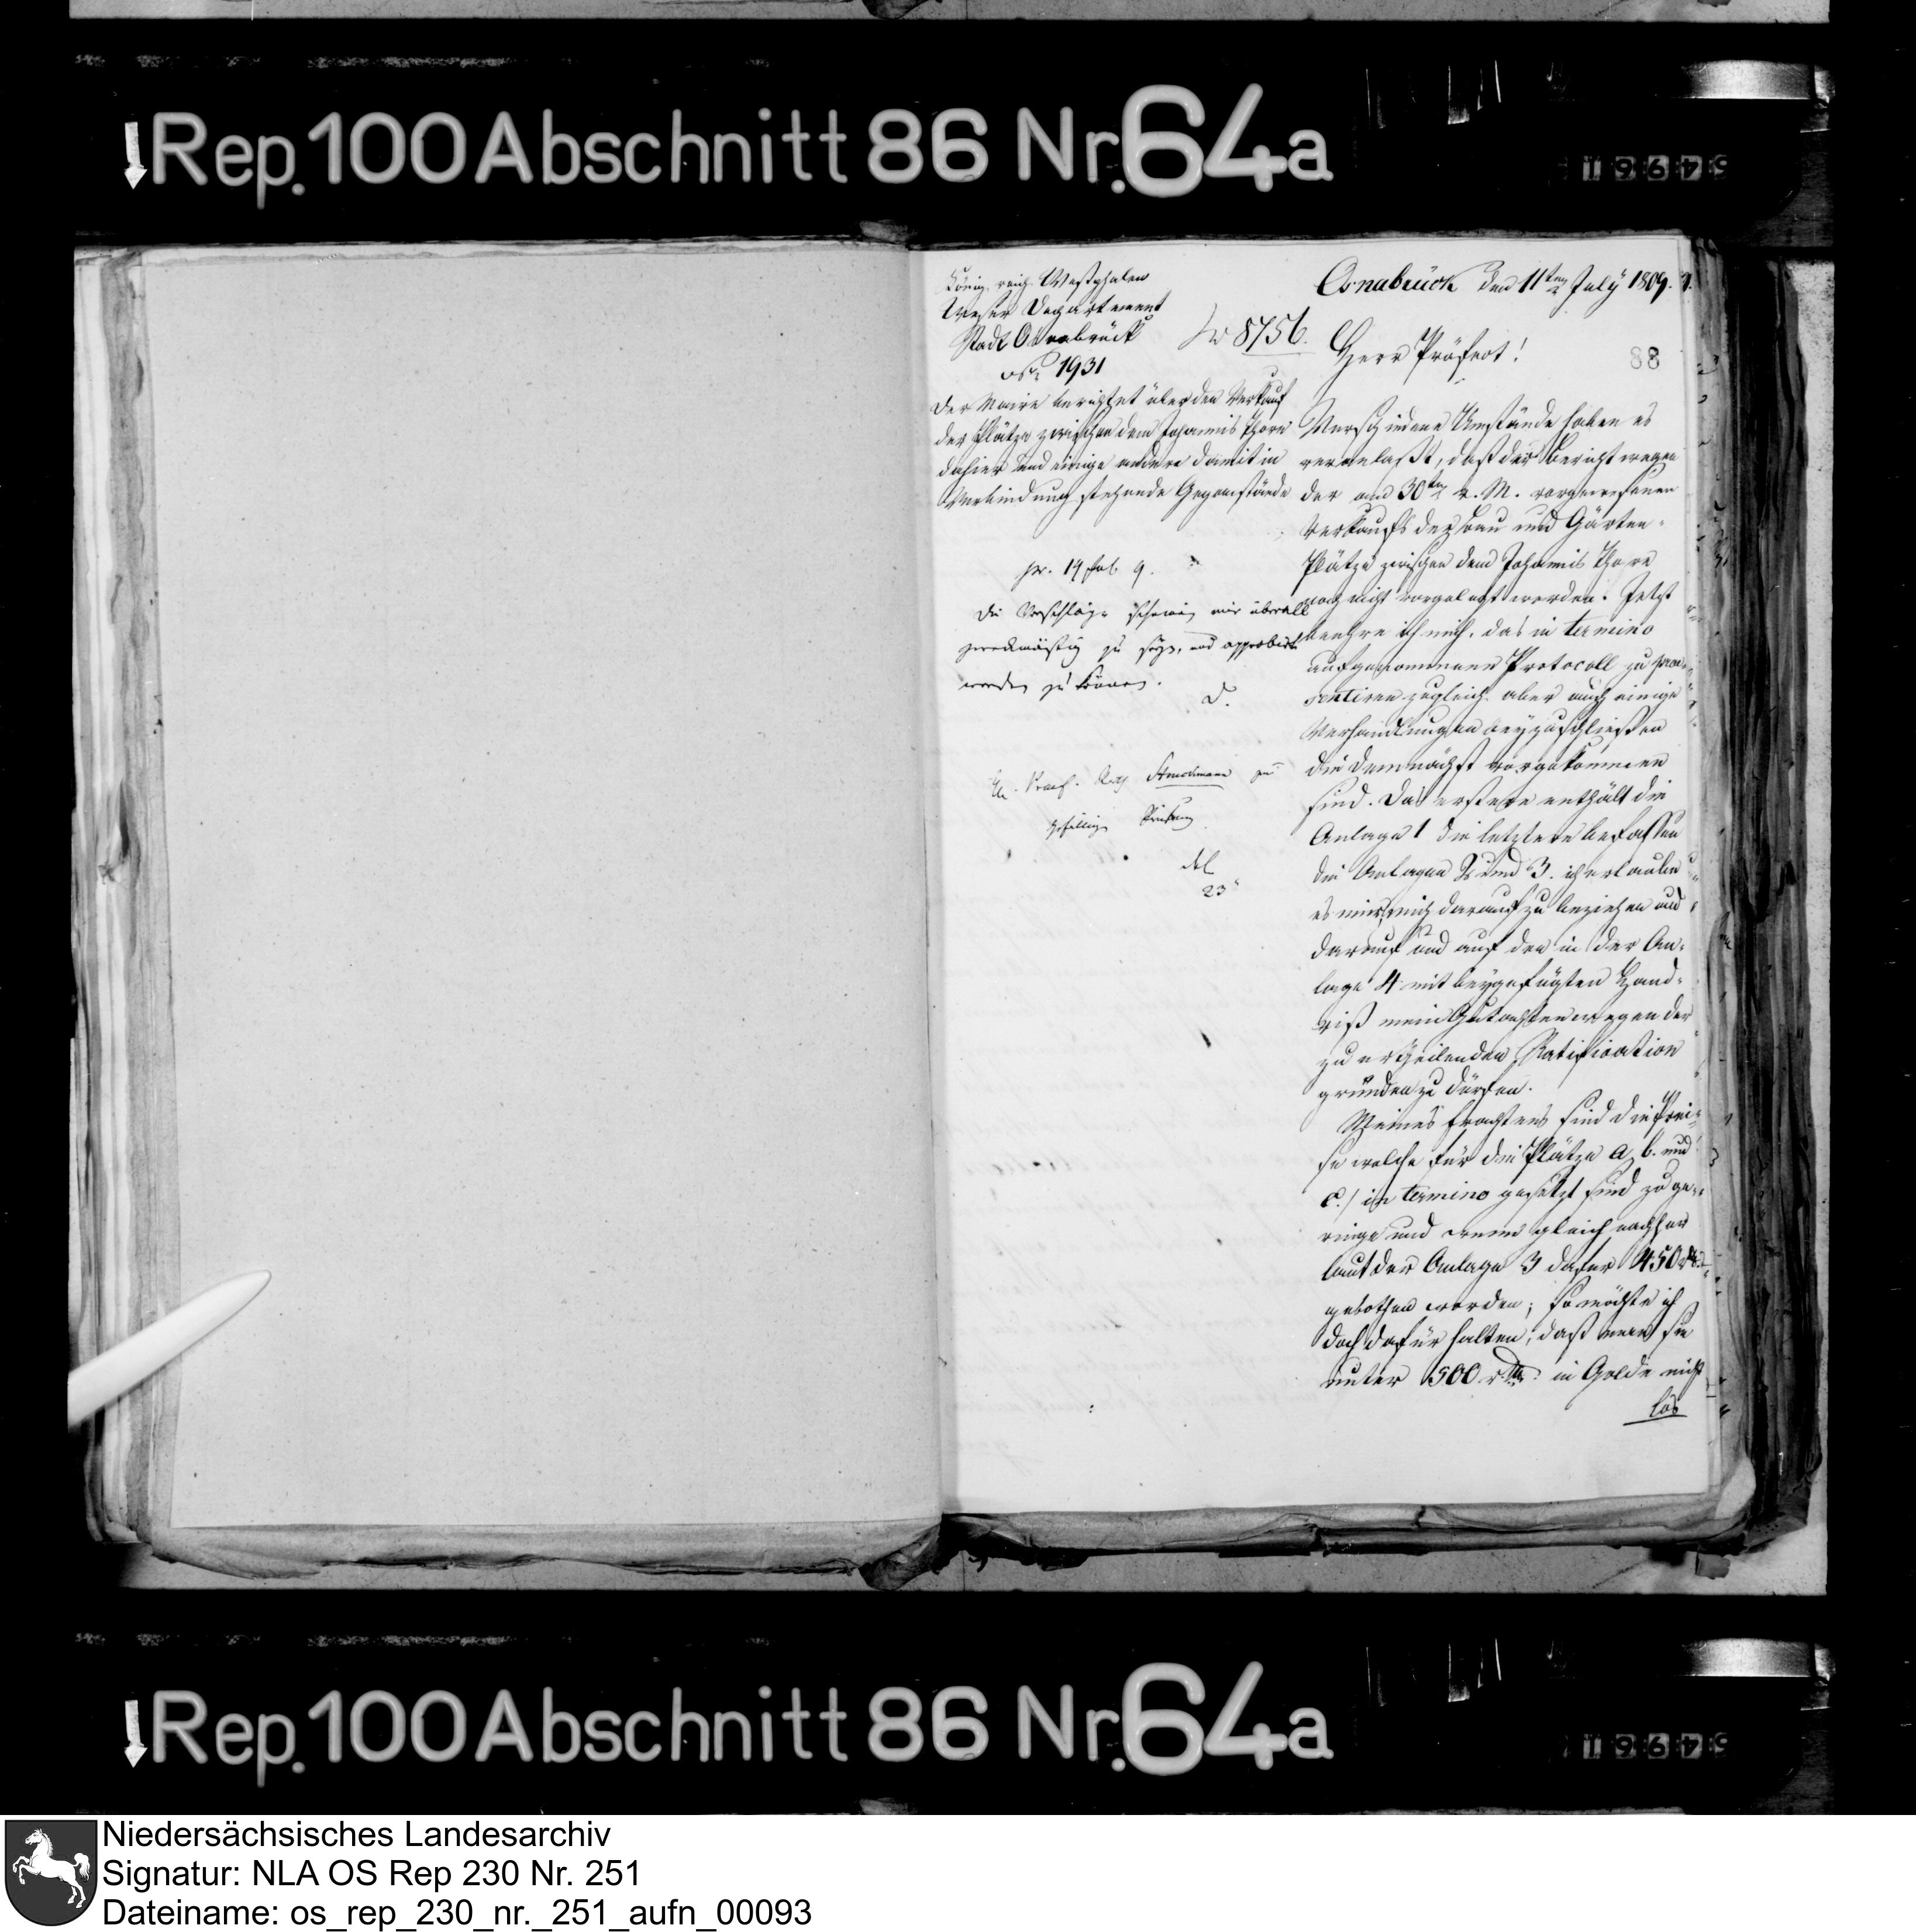 Rep. 100 Abschnitt 86 Nr. 64a
Königreich Westphalen
Weser Departement
Stadt Osnabrück
1931
8756.
Der Maire berichtet über den Verkauf
der Plätze zwischen dem Johannis Thore
dahier und einige andere damit in
Verbindung stehende Gegenstände
pr. 19 9.
Die Vorschläge scheinen mir überall
zweckmäßig zu seyn, und approbirt
werden zu können.
D.
Struckmann
gefälligen
23
Osnabrück den 11ten July 1809.
Herr Präfect!
88
Verschiedene Umstände haben es
veranlaßt, daß der Bericht wegen
der am 30ten v. M. vorgewesenen
Verkaufs der Bau und Gärten-
Plätze zwischen dem Johannis Thore
noch nicht vorgelegt worden. Jetzt
beehre ich mich, das in termino
aufgenommene Protocoll zu prae-
sentiren zugleich aber auch einige
Verhandlungen beyzuschließen
die demnächst vorgekommen
sind. Das erstere enthält die
Anlage 1 die letztere befassen
die Anlagen 2 und 3. ich erlaube
es mir, mich darauf zu beziehen und
darauf und auf den in der An-
lage 4 mit beygefügten Hand-
riß mein Gutachten wegen der
zu ertheilenden Ratification
gründen zu dürfen.
Meines Erachtens sind die Prei-
se welche für die Plätze a, b. und
c./ in termino gesetzt sind zu ge-
ringe und wenn gleich nachher
laut der Anlage 3 dafür 450 rthlr
gebothen worden; so möchte ich
doch dafür halten, daß man sie
unter 500 rthlr. in Golde nicht
los
Rep. 100 Abschnitt 86 Nr. 64a
Niedersächsisches Landesarchiv
Signatur: NLA OS Rep 230 Nr. 251
Dateiname: os_rep_230_nr._251_aufn_00093